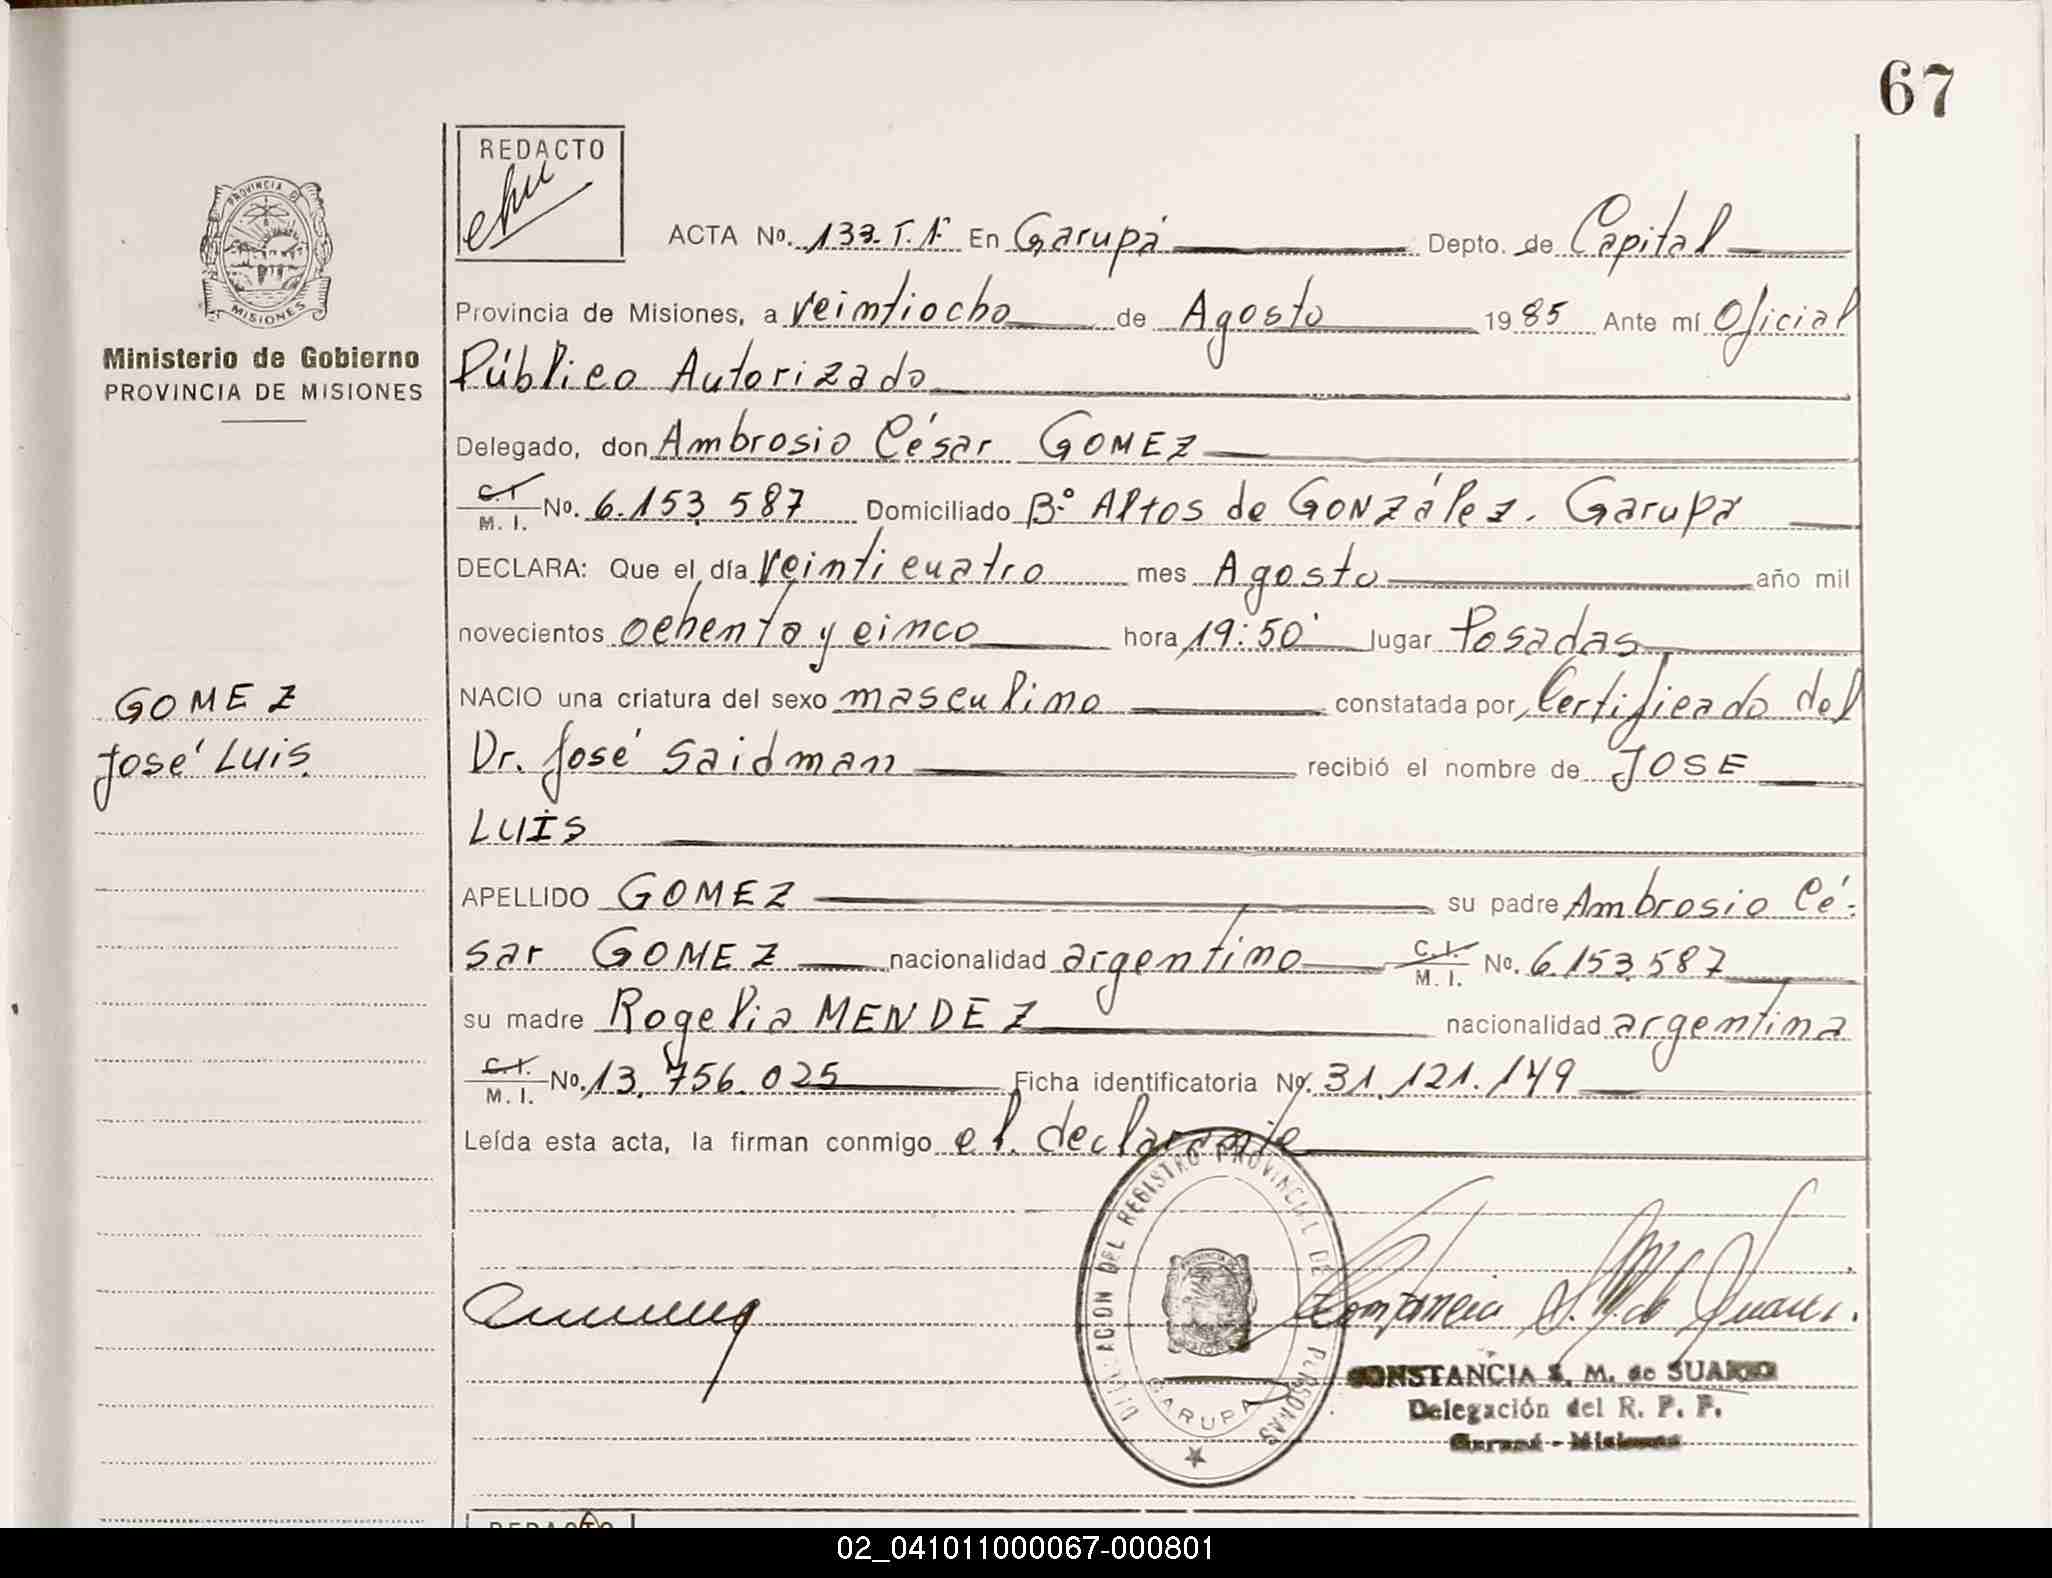 67
REDACTO
ACTA No. 133. T. 1º En Garupá Depto. de Capital
PROVINCIA DE
MISIONES
Provincia de Misiones, a veintiocho de Agosto 1985 Ante mí Oficial
Ministerio de Gobierno
PROVINCIA DE MISIONES
Público Autorizado
Delegado, don Ambrosio César GOMEZ
C. I.
M. I. No. 6.153.587 Domiciliado Bº Altos de GONzález. Garupa
DECLARA: Que el día veinticuatro mes Agosto año mil
novecientos ochenta y cinco hora 19:50' lugar Posadas
GOMEZ
José Luis.
NACIO una criatura del sexo masculino constatada por Certificado del
Dr. José Saidman recibió el nombre de JOSE
LUIS
APELLIDO GOMEZ su padre Ambrosio Cé-
sar GOMEZ nacionalidad argentino C. I. M. I. No. 6.153.587
su madre Rogelia MENDEZ nacionalidad argentina
C. I.
M. I. No. 13.756.025 Ficha identificatoria No. 31.121.149
Leída esta acta, la firman conmigo el declarante
DIRECCION DEL REGISTRO PROVINCIAL DE PERSONAS
GARUPA
Constancia S. M. de Suarez.
CONSTANCIA S. M. de SUAREZ
Delegación del R. P. P.
Garupá - Misiones
REDACTO
02_041011000067-000801